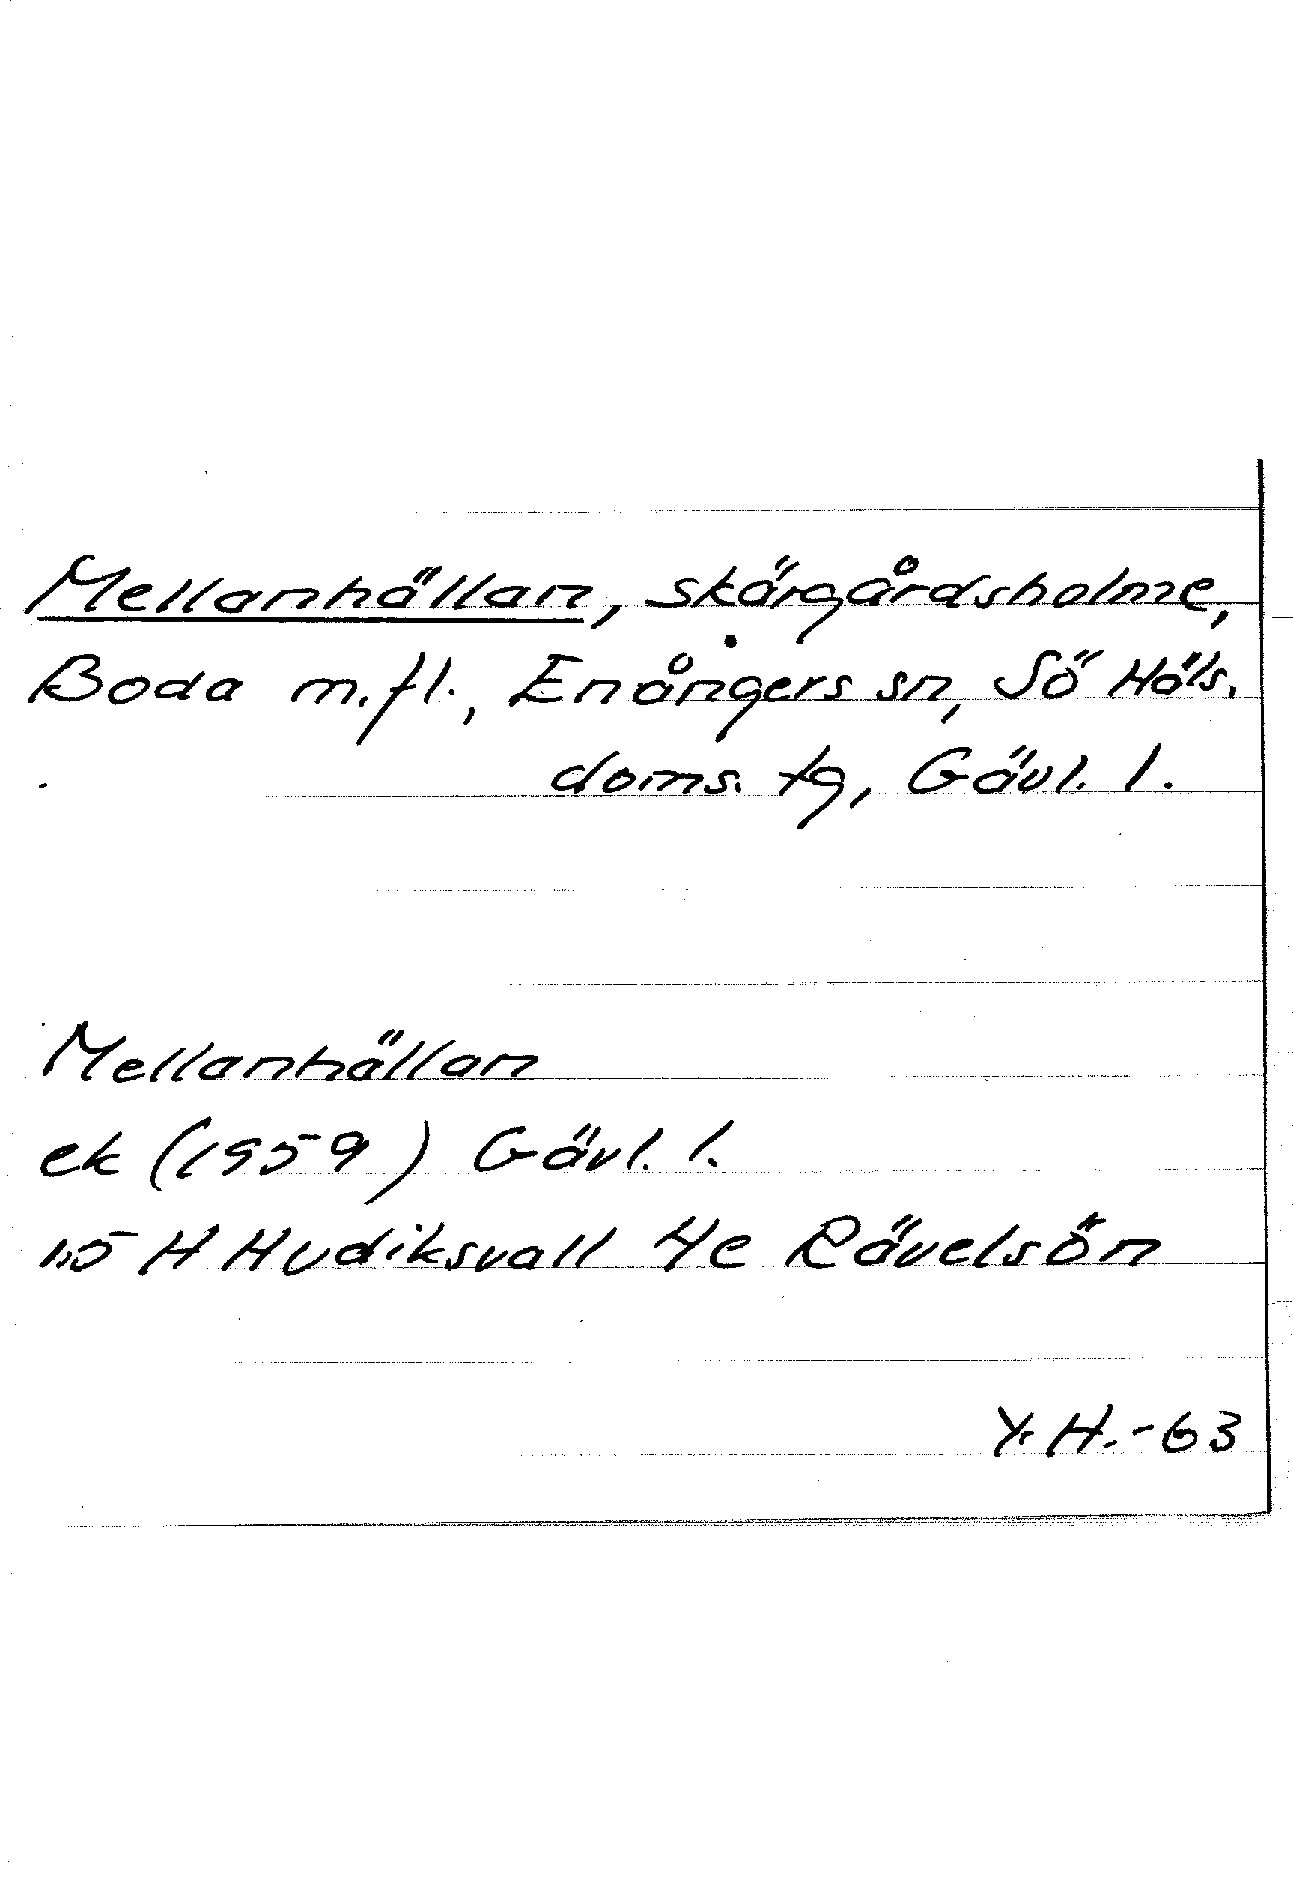 Mellanhällan, skärgårdsholme,
Boda m.fl., Enångers sn, Sö Häls.
doms. tg, Gävl. l.
Mellanhällan
ek (1959) Gävl. l.
15 H Hudiksvall 4e Rävelsön
Y. H. -63